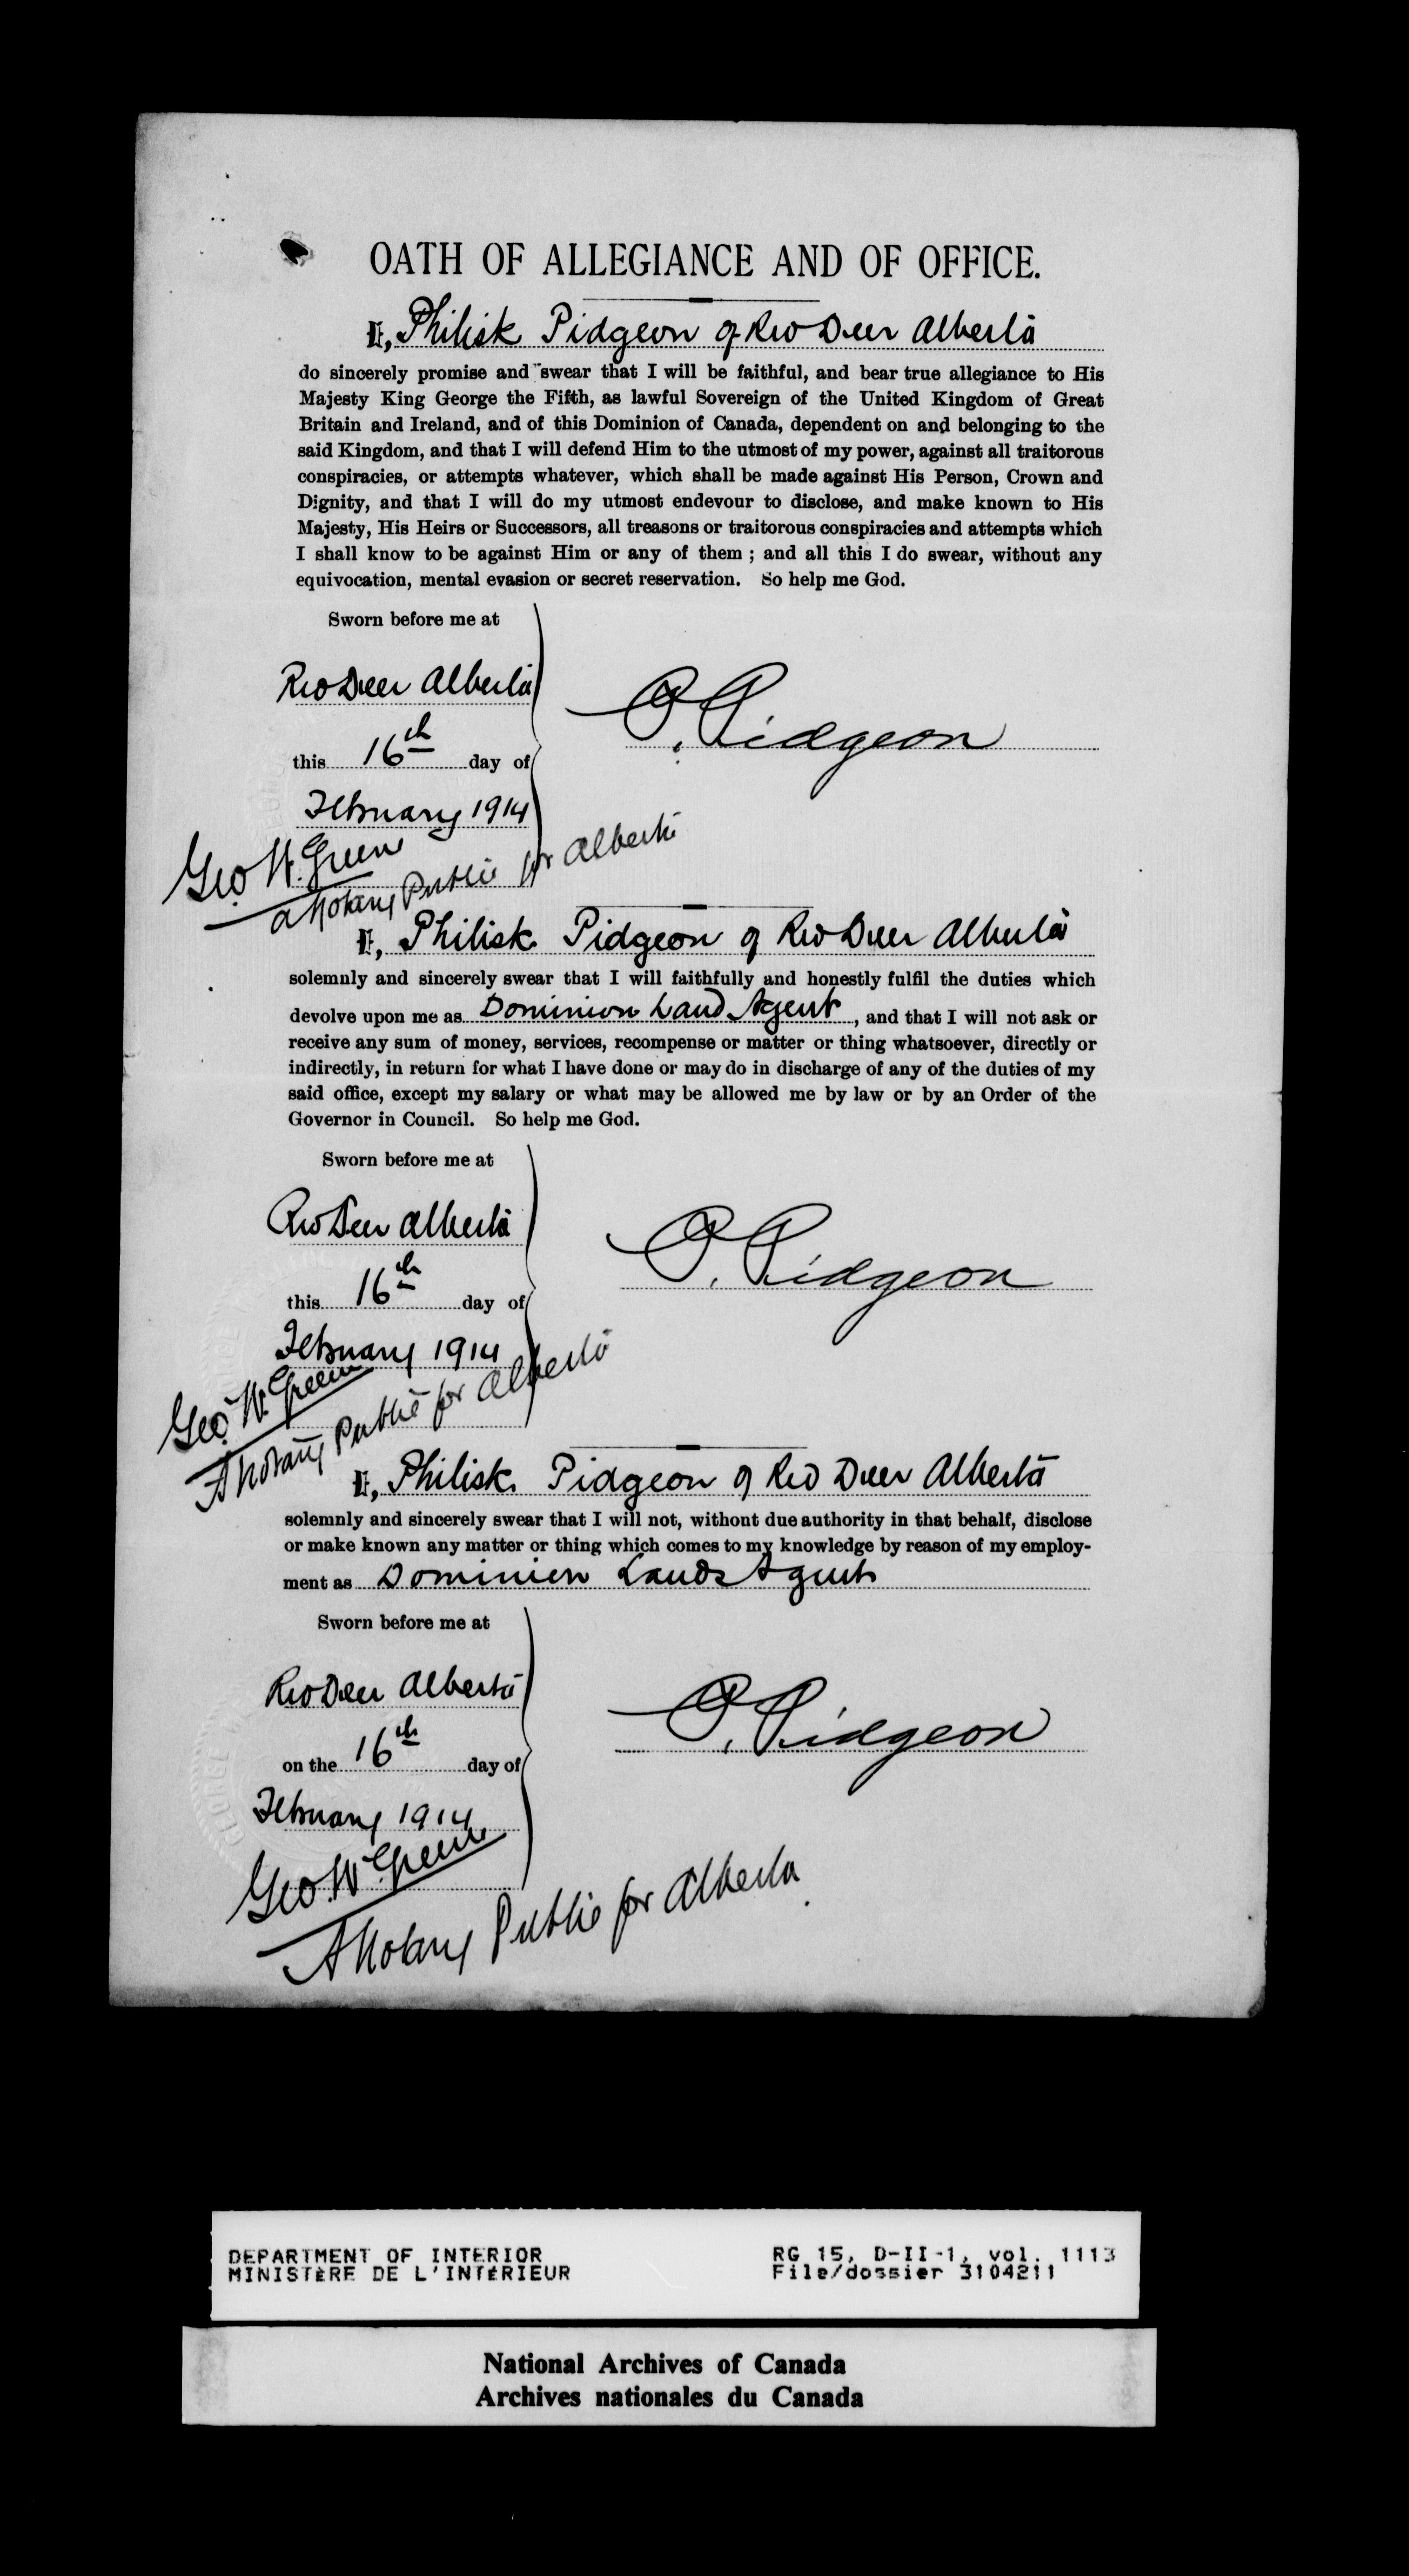 OATH OF ALLEGIANCE AND OF OFFICE.
I, Philisk Pidgeon of Red Deer Alberta
do sincerely promise and swear that I will be faithful, and bear true allegiance to His
Majesty King George the Fifth, as lawful Sovereign of the United Kingdom of Great
Britain and Ireland, and of this Dominion of Canada, dependent on and belonging to the
said Kingdom, and that I will defend Him to the utmost of my power, against all traitorous
conspiracies, or attempts whatever, which shall be made against His Person, Crown and
Dignity, and that I will do my utmost endevour to disclose, and make known to His
Majesty, His Heirs or Successors, all treasons or traitorous conspiracies and attempts which
I shall know to be against Him or any of them ; and all this I do swear, without any
equivocation, mental evasion or secret reservation. So help me God.
Sworn before me at
Red Deer Alberta
P. Pidgeon
this 16th day of
February 1914
Geo. W. Greene
a Notary Public for Alberta
I, Philisk Pidgeon of Red Deer Alberta
solemnly and sincerely swear that I will faithfully and honestly fulfil the duties which
devolve upon me as Dominion Land Agent, and that I will not ask or
receive any sum of money, services, recompense or matter or thing whatsoever, directly or
indirectly, in return for what I have done or may do in discharge of any of the duties of my
said office, except my salary or what may be allowed me by law or by an Order of the
Governor in Council. So help me God.
Sworn before me at
Red Deer Alberta
P. Pidgeon
this 16th day of
February 1914
Geo. W. Greene
A Notary Public for Alberta
I, Philisk Pidgeon of Red Deer Alberta
solemnly and sincerely swear that I will not, without due authority in that behalf, disclose
or make known any matter or thing which comes to my knowledge by reason of my employ-
ment as Dominion Lands Agent
Sworn before me at
Red Deer Alberta
P. Pidgeon
on the 16th day of
February 1914
Geo. W. Greene
A Notary Public for Alberta
DEPARTMENT OF INTERIOR
MINISTÈRE DE L'INTÉRIEUR
RG 15, D-II-1, vol. 1113
File/dossier 3104211
National Archives of Canada
Archives nationales du Canada